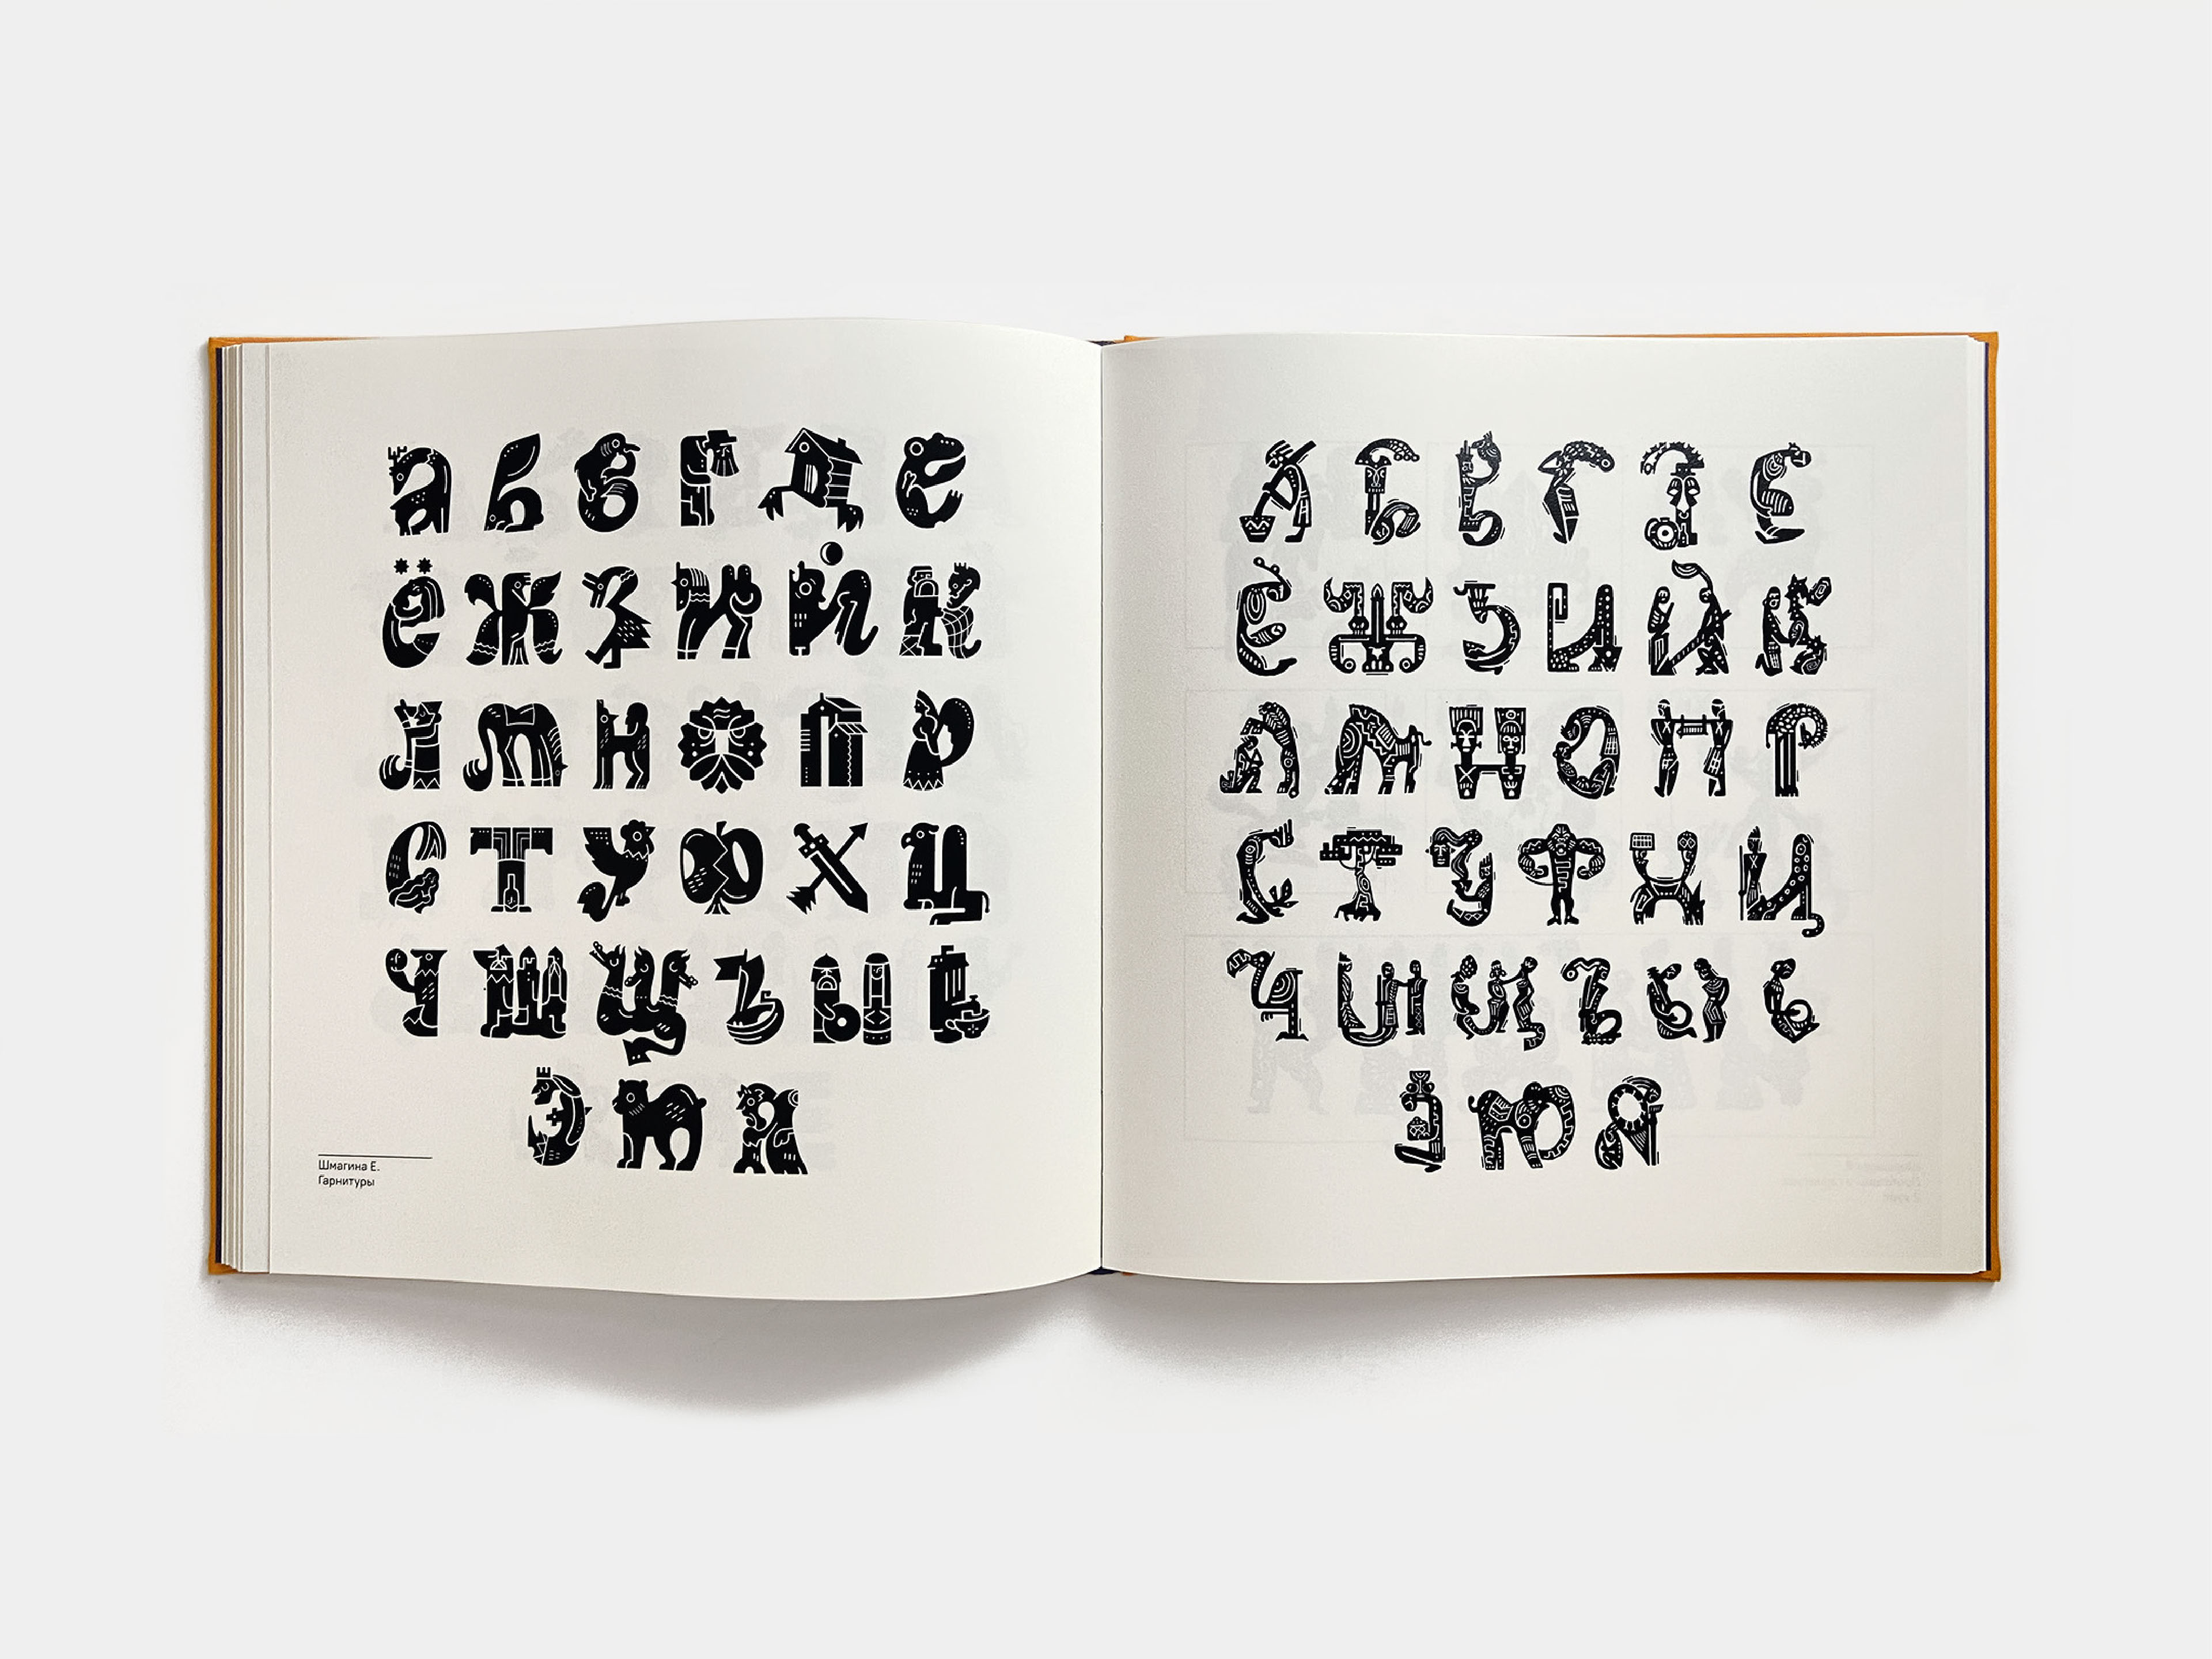 а б в г д е
ё ж з и й к
л м н о п р
с т у ф х ц
ч ш щ ъ ы ь
э ю я
Шмагина Е.
Гарнитуры
А Б В Г Д Е
Ё Ж З И Й К
Л М Н О П Р
С Т У Ф Х Ц
Ч Ш Щ Ъ Ы Ь
Э Ю Я